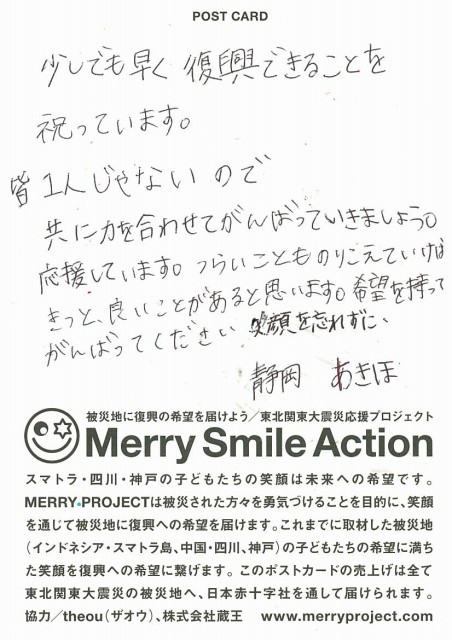 POST CARD
少しでも早く 復興できることを
祝っています。
皆 1人じゃない ので
共に力を合わせてがんばっていきましょう。
応援しています。つらいことものりこえていけば
きっと、良いことがあると思います。希望を持って
がんばってください 笑顔を忘れずに、
静岡 あきほ
被災地に復興の希望を届けよう／東北関東大震災応援プロジェクト
Merry Smile Action
スマトラ・四川・神戸の子どもたちの笑顔は未来への希望です。
MERRY•PROJECTは被災された方々を勇気づけることを目的に、笑顔
を通じて被災地に復興への希望を届けます。これまでに取材した被災地
（インドネシア・スマトラ島、中国・四川、神戸）の子どもたちの希望に満ち
た笑顔を復興への希望に繋げます。このポストカードの売上げは全て
東北関東大震災の被災地へ、日本赤十字社を通して届けられます。
協力／theou（ザオウ）、株式会社蔵王 www.merryproject.com